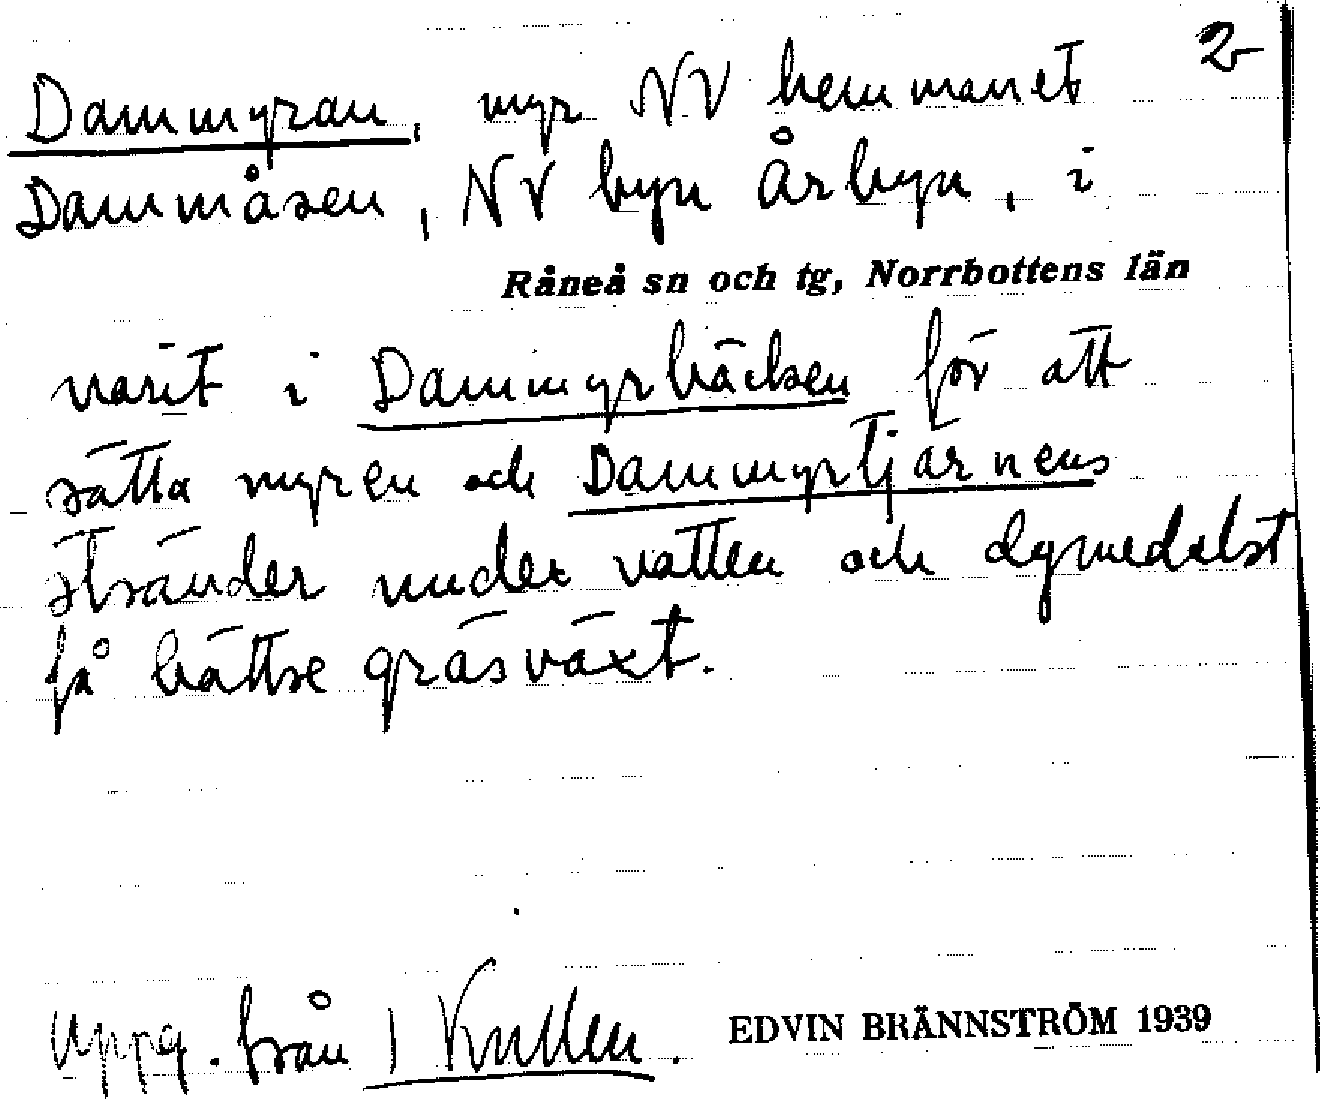 2
Dammyran, myr NV hemmanet
Dammåsen, NV byn Årbyn, i
Råneå sn och tg, Norrbottens län
varit i Dammyrbäcken för att
sätta myren och Dammyrtjärnens
stränder under vatten och dymedelst
få bättre gräsväxt.
Uppg. från 1 Kullen.
EDVIN BRÄNNSTRÖM 1939